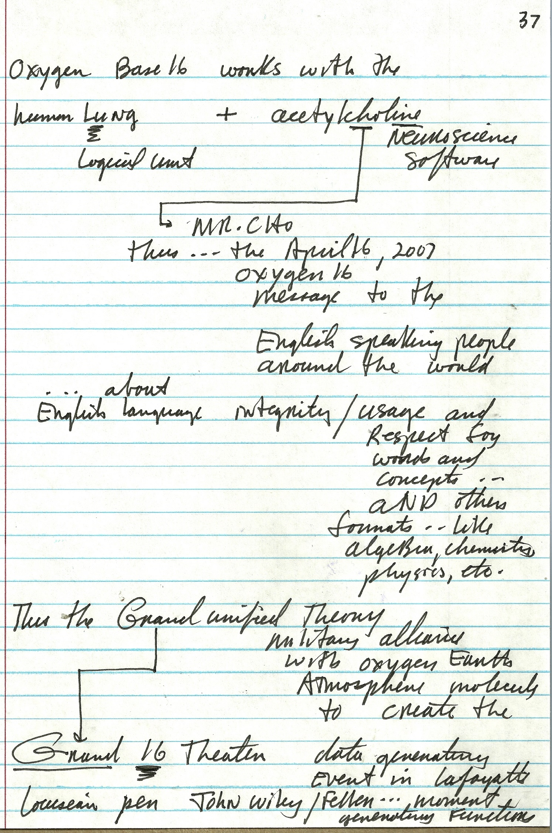 37
Oxygen Base 16 works with the
human Lung + acetylcholine
Logical unit
Neuroscience
Software
MR. CHO
thus --- the April 16, 2007
oxygen 16
message to the
English speaking people
around the world
.... about
English language integrity / usage and
Respect for
words and
concepts --
AND others
formats -- like
algebra, chemistry,
physics, etc.
Thus the Grand unified Theory
military alliance
with oxygen Earth
Atmosphere molecule
to create the
Grand 16 Theater data generating
Event in Lafayette
pen John Wiley / Feller --- moment
generating Function